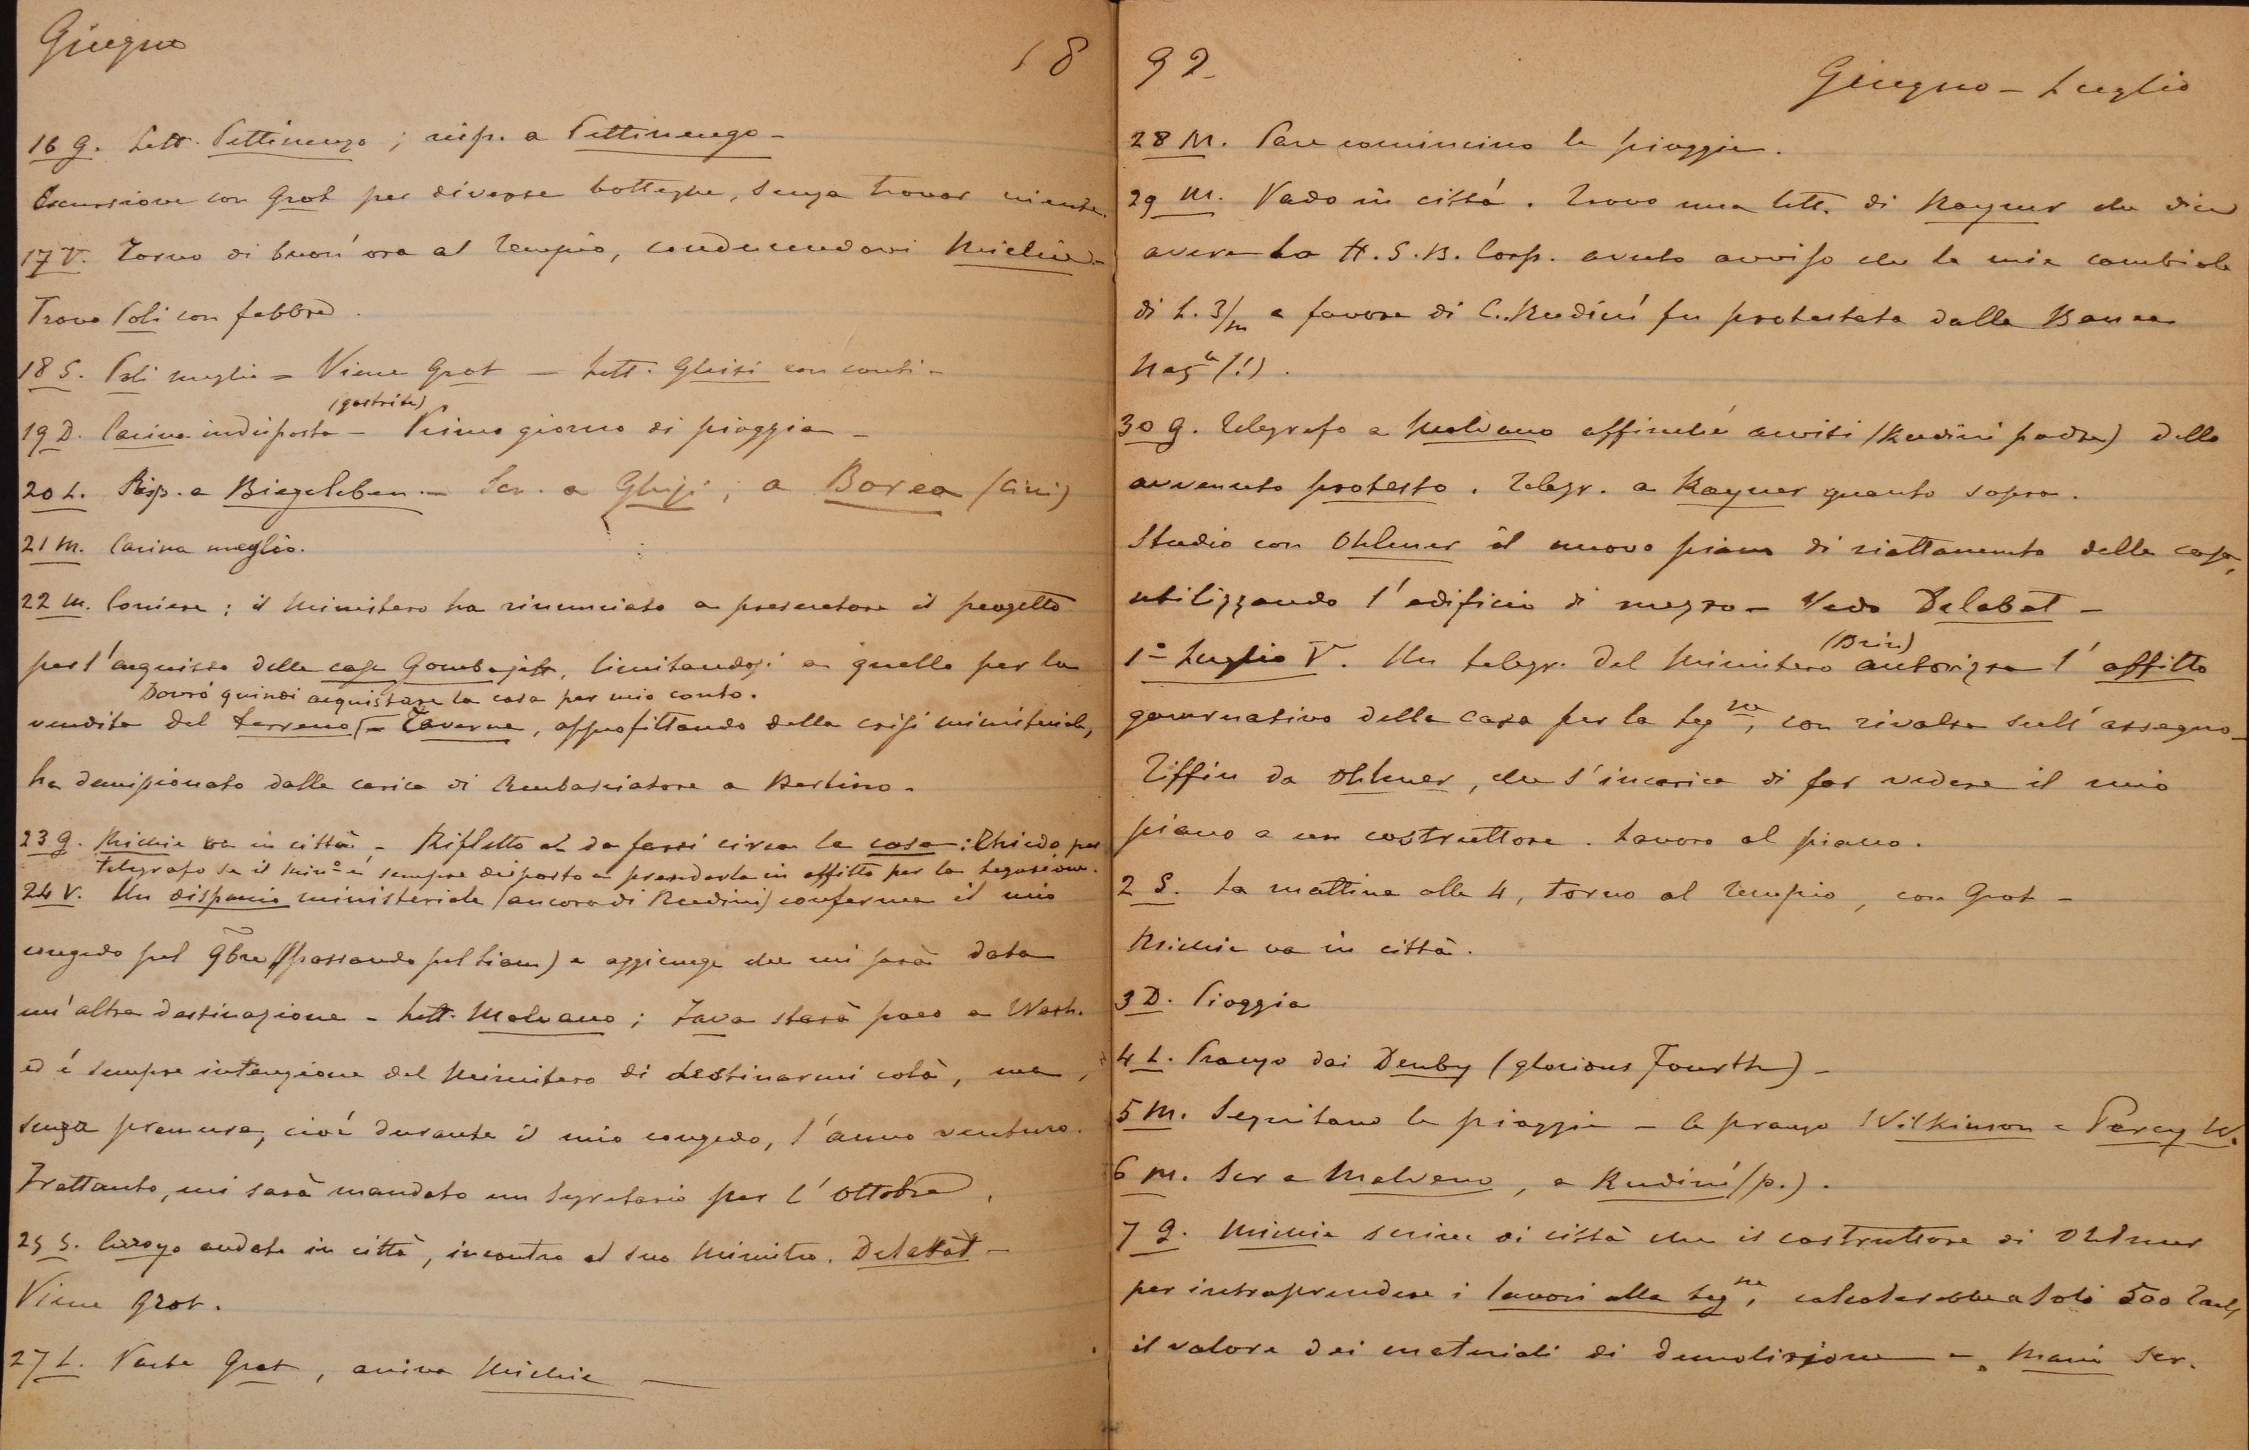 Giugno
18
16 G. Lett. Pettinengo ; risp. a Pettinengo –
Escursione con Grot per diverse botteghe, senza trovar niente.
17 V. Torno di buon'ora al Tempio, conducendovi Michie –
Trovo Poli con febbre.
18 S. Poli meglio = Viene Grot – Lett. Ghisi con conti –
(gastrite)
19 D. Carina indisposta – Primo giorno di pioggia –
20 L. Risp. a Biegeleben. – Scr. a Ghisi, a Borea (Cini)
21 M. Carina meglio.
22 M. Corriere : il Ministero ha rinunciato a presentare il progetto
per l'acquisto della casa, limitandosi a quello per la
Dovrò quindi acquistare la casa per mio conto.
vendita del terreno – Taverna, approfittando della crisi ministeriale,
ha demissionato dalla carica di Ambasciatore a Berlino –
23 G. Michie va in città – Rifletto al da farsi circa la casa : Chiedo per
telegrafo se il Min.o è sempre disposto a prenderla in affitto per la Legazione.
24 V. Un dispaccio ministeriale (ancora di Rudinì) conferma il mio
congedo pel 9bre (passando pel Siam) e aggiunge che mi sarà data
un'altra destinazione – Lett. Malvano ; Fava starà poco a Wash.
ed é sempre intenzione del Ministero di destinarmi colà, ma,
senza premura, cioé durante il mio congedo, l'anno venturo.
Frattanto, mi sarà mandato un Segretario per l'Ottobre.
25 S. andato in città, incontro al suo Ministro. Delabat –
Viene Grot.
27 L. Parte Grot, arriva Michie –
92
Giugno – Luglio
28 M. Pare comincino le pioggie.
29 M. Vado in città. Trovo una lett. di Rayner che dice
avere la H.S.B. Corp. avuto avviso che la mia cambiale
di L. 3/m a favore di C. Rudiní fu protestata dalla Banca
Naz.le (!).
30 G. Telegrafo a Malvano affinché avvisi (Rudiní padre) dello
avvenuto protesto. Telegr. a Rayner quanto sopra.
Studio con Ohlmer il nuovo piano di riattamento della casa,
utilizzando l'edificio di mezzo – Vedo Delabat –
(Brin)
1° Luglio V. Un telegr. del Ministero autorizza l'affitto
governativo della casa per la Legne, con rivalsa sull'assegno –
Tiffin da Ohlmer, che s'incarica di far vedere il mio
piano a un costruttore. Lavoro al piano.
2 S. La mattina alle 4, torno al Tempio, con Grot –
Michie va in città.
3 D. Pioggia
4 L. Pranzo dai Denby (glorious Fourth) –
5 M. Seguitano le pioggie – A pranzo Wilkinson e Percy W.
6 M. Scr a Malvano, a Rudiní (p.).
7 G. Michie scrive di città che il costruttore di Ohlmer
per intraprendere i lavori alla Legne, calcolerebbe a soli 500 Taels
il valore dei materiali di demolizione – scr.